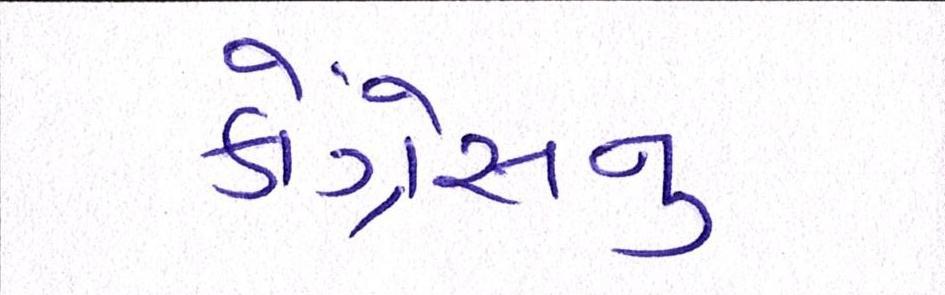 કોંગ્રેસનુ